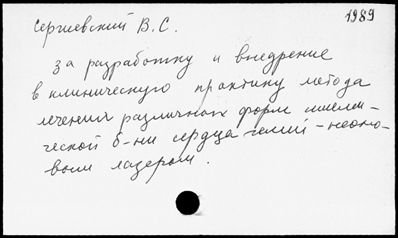 Сергиевский В.С.
1989
за разработку и внедрение
в клиническую практику метода
лечения различных форм ишеми-
ческой б-ни сердца гелий-неоно-
вым лазером.